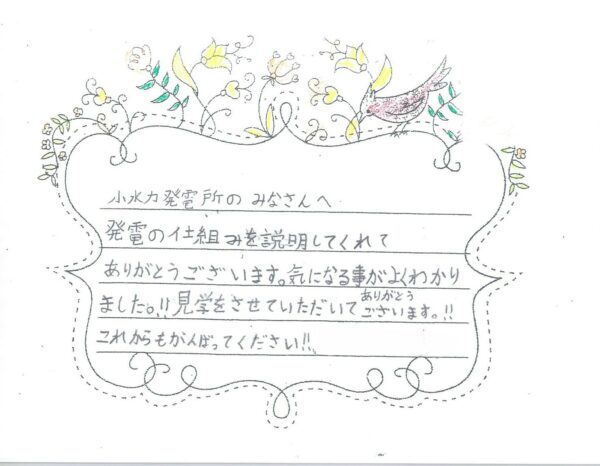 小水力発電所の みなさんへ
発電の仕組みを説明してくれて
ありがとうございます。気になる事がよくわかり
ました。!!見学をさせていただいて ありがとうございます。!!
これからもがんばってください!!